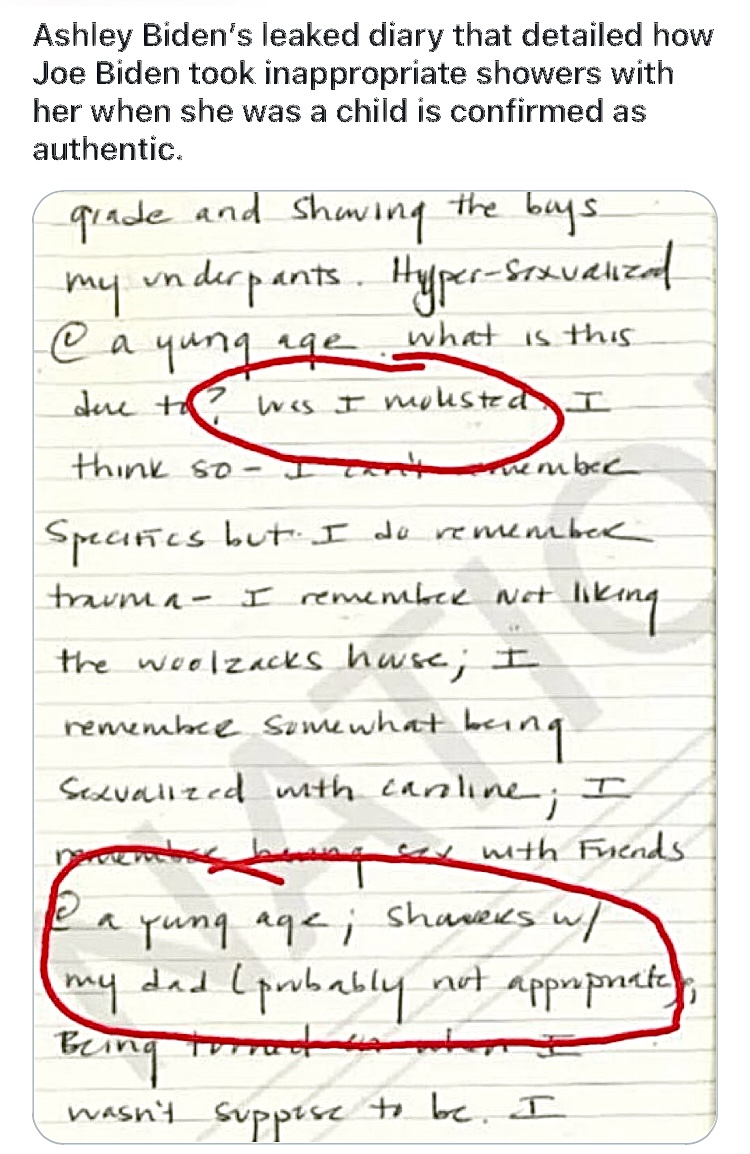 Ashley Biden's leaked diary that detailed how
Joe Biden took inappropriate showers with
her when she was a child is confirmed as
authentic.
grade and showing the boys
my underpants. Hyper-sexualized
@ a yung age. what is this
due to? Was I molested. I
think so - I can't remember
specifics but I do remember
trauma - I remember not liking
the woolzacks house; I
remember somewhat being
sexualized with caroline; I
remember having sex with Friends
@ a yung age; showers w/
my dad (probably not appropriate),
Being turned on when I
wasn't suppose to be. I
NATIO